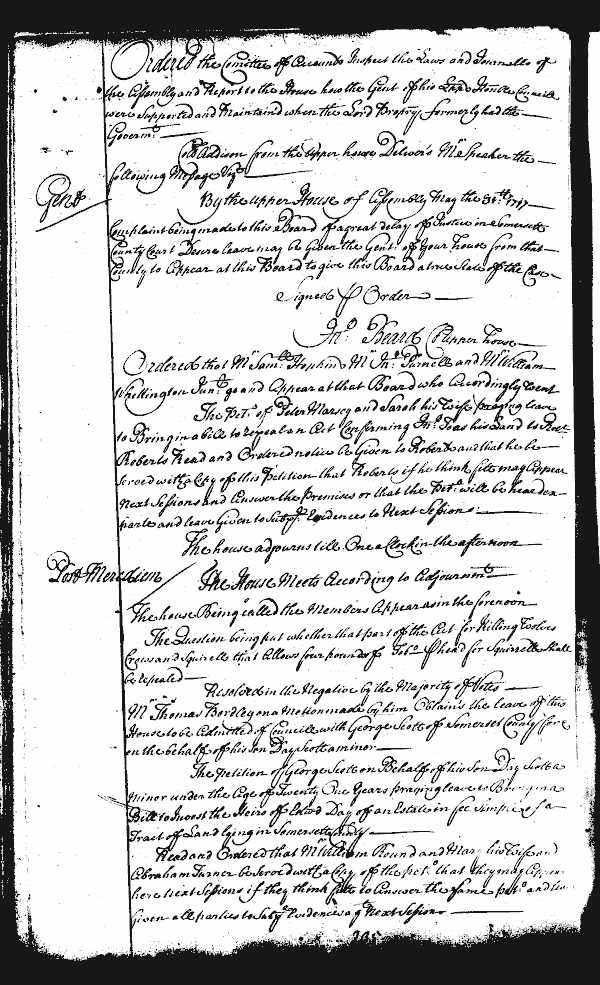 Ordered the Comittee of Accounts Inspect the Laws and Journalls of
the Assembly and Report to the House how the Gent of his Lordsp Honble Councile
were Supported and Maintained when the Lord Proptry formerly had the
Governmt
Coll Addison from the upper house Deliver's Mr Speaker the
following Message Vizt
Gent
By the upper House of Assembly May the 30th 1717
Complaint being made to this Board of a great delay of Justice in Somersett
County Court Desire leave may be Given the Gent: of your house from that
County to Appear at this Board to give this Board a true State of the Case
Signed p Order
Jno Beard Cl upper house
Ordered that Mr Saml Hopkins Mr Jno Purnell and Mr William
Whettington Junr go and Appear at that Board who Accordingly went
The Petn of Peter Marsey and Sarah his Wife praying leave
to Bring in a bill to repeal an Act Confirming Jno his Land to Robt
Roberts Read and Ordered notice be Given to Roberts and that he be
served with a Copy of this Petition that Roberts if he think fitt may Appear
Next Sessions and Answer the Premises or that the Petn will be heard ex
parte and leave Given to Subp Evidences to Next Sessions
The house adjourns till One a Clock in the afternoon
Post Meredien
The House Meets According to Adjournmt
The house Being called the Members Appear as in the forenoon
The Question being put whether that part of the Act for Killing Wolves
Crows and Squirells that Allows four pounds of Tobo p head for Squirells Shall
be repealed
Resolved in the Negative by the Majority of Votes
Mr Thomas Bordley on a Motion made by him Obtains the leave of this
House to be Admitted of Councile with George Scott of Somerset County for &
on the behalf of his son Day Scott a minor
The Petition of George Scott on Behalf of his Son Day Scott a
minor under the Age of Twenty One Years praying leave to Bring in a
Bill to Invest the Heirs of Edwd Day of an Estate in fee Simple of a
Tract of Land lying in Somersett County
Read and Ordered that Mr William Round and Mary his Wife and
Abraham Turner be Served with a Copy of the petn that they may Appear
here next Sessions if they think fitt to Answer the same petn and leave
Given all parties to Subp Evidences a g Next Sessions